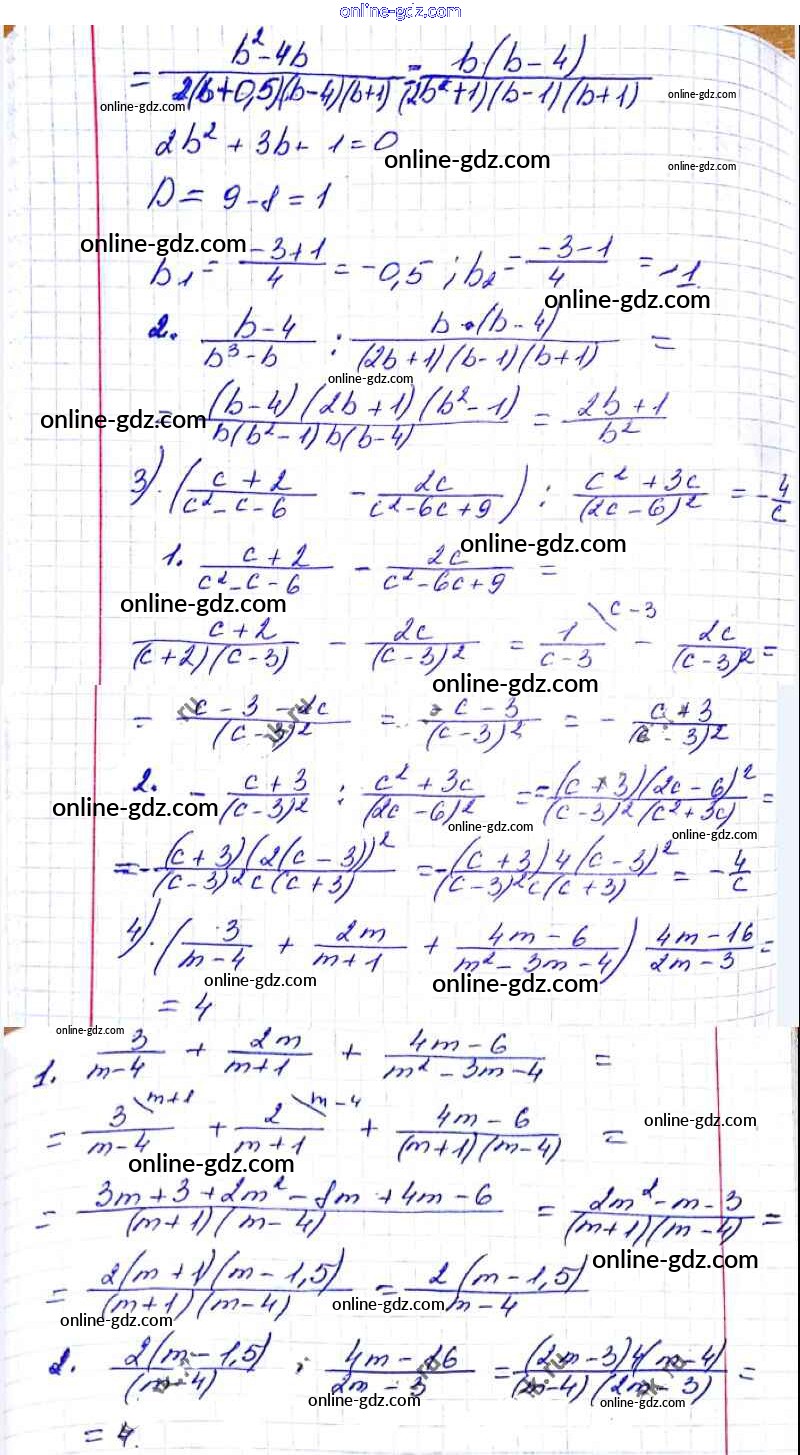 online-gdz.com
= (b² - 4b)/(2(b+0,5)(b-4)(b+1)) = (b·(b-4))/((2b²+1)(b-1)(b+1))
online-gdz.com online-gdz.com
2b² + 3b + 1 = 0
online-gdz.com online-gdz.com
D = 9 - 8 = 1
online-gdz.com
b₁ = (-3+1)/4 = -0,5 ; b₂ = (-3-1)/4 = -1
online-gdz.com
2. (b-4)/(b³-b) : (b·(b-4))/((2b+1)(b-1)(b+1)) =
online-gdz.com
= ((b-4)(2b+1)(b²-1))/(b(b²-1)b(b-4)) = (2b+1)/b²
online-gdz.com
3). ((c+2)/(c²-c-6) - 2c/(c²-6c+9)) : (c²+3c)/(2c-6)² = -4/c
online-gdz.com
1. (c+2)/(c²-c-6) - 2c/(c²-6c+9) =
online-gdz.com
(c+2)/((c+2)(c-3)) - 2c/(c-3)² = 1\c-3/(c-3) - 2c/(c-3)² =
online-gdz.com
= (c-3-2c)/(c-3)² = (-c-3)/(c-3)² = -(c+3)/(c-3)²
2. -(c+3)/(c-3)² : (c²+3c)/(2c-6)² = -((c+3)(2c-6)²)/((c-3)²(c²+3c)) =
online-gdz.com online-gdz.com online-gdz.com
= -((c+3)(2(c-3))²)/((c-3)²c(c+3)) = -((c+3)4(c-3)²)/((c-3)²c(c+3)) = -4/c
4). (3/(m-4) + 2m/(m+1) + (4m-6)/(m²-3m-4)) (4m-16)/(2m-3) =
online-gdz.com online-gdz.com
= 4
online-gdz.com
1. 3/(m-4) + 2m/(m+1) + (4m-6)/(m²-3m-4) =
= 3\m+1/(m-4) + 2\m-4/(m+1) + (4m-6)/((m+1)(m-4)) =
online-gdz.com online-gdz.com
= (3m+3+2m²-8m+4m-6)/((m+1)(m-4)) = (2m²-m-3)/((m+1)(m-4)) =
online-gdz.com
= (2(m+1)(m-1,5))/((m+1)(m-4)) = (2(m-1,5))/(m-4)
online-gdz.com online-gdz.com
2. (2(m-1,5))/(m-4) · (4m-16)/(2m-3) = ((2m-3)4(m-4))/((m-4)(2m-3)) =
online-gdz.com online-gdz.com
= 4.